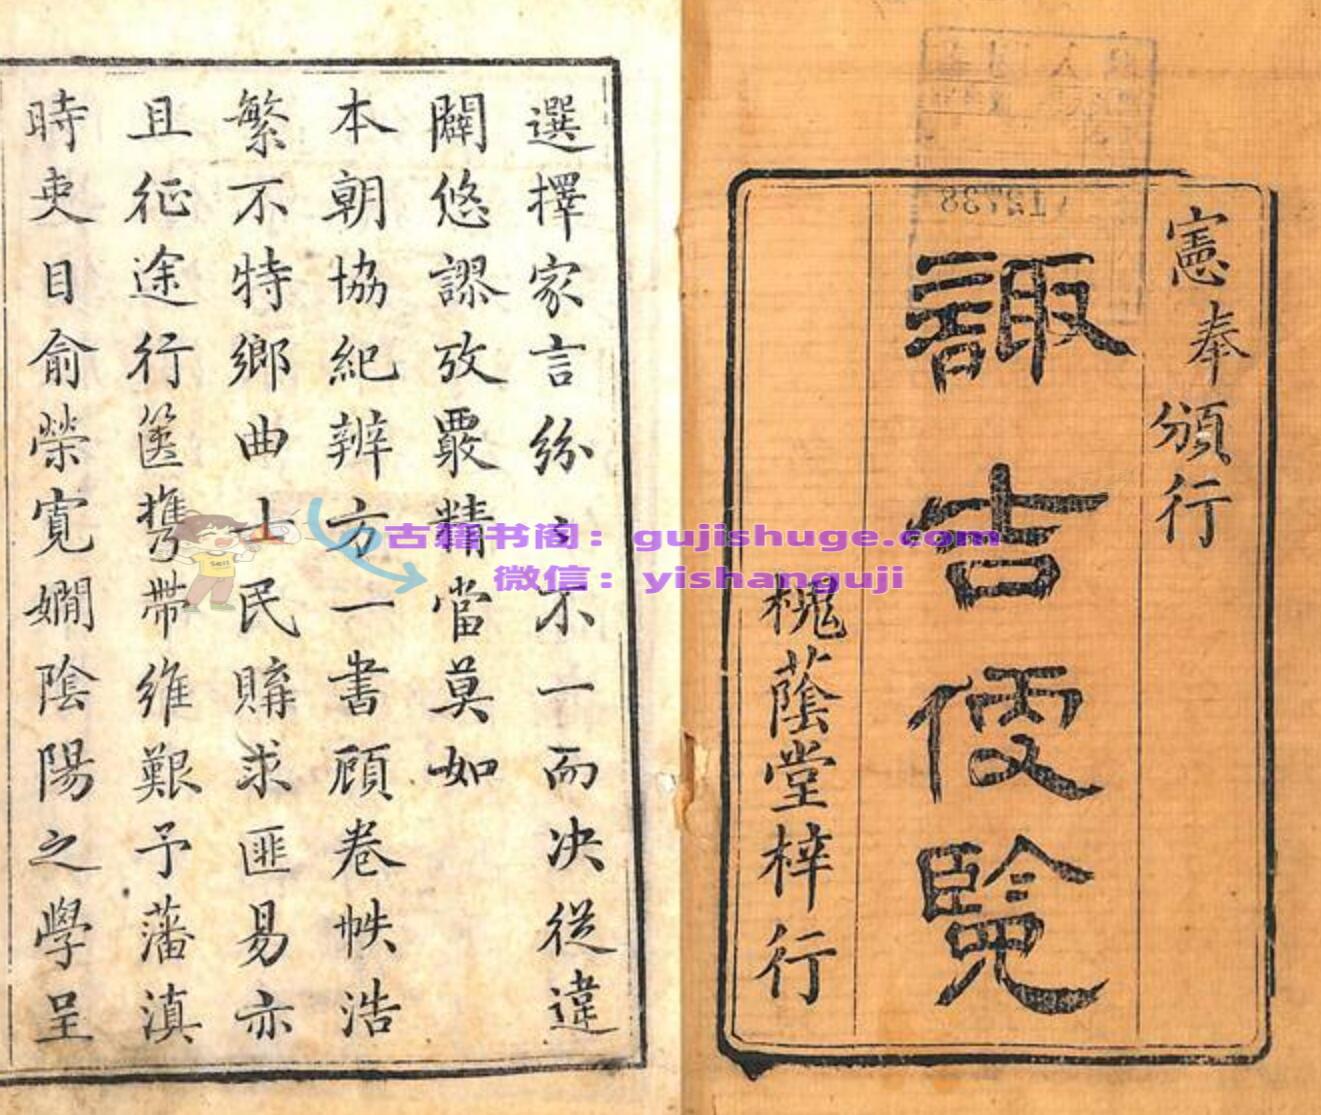 憲奉頒行
諏吉便覽
槐蔭堂梓行
選擇家言紛不一而决從違
闢悠謬攷覈精當莫如
本朝協紀辨方一書顧卷帙浩
繁不特鄉曲士民購求匪易亦
且征途行篋攜帶維艱予藩滇
時吏目俞榮寬嫺陰陽之學呈
古籍书阁：gujishuge.com
微信：yishanguji
12738